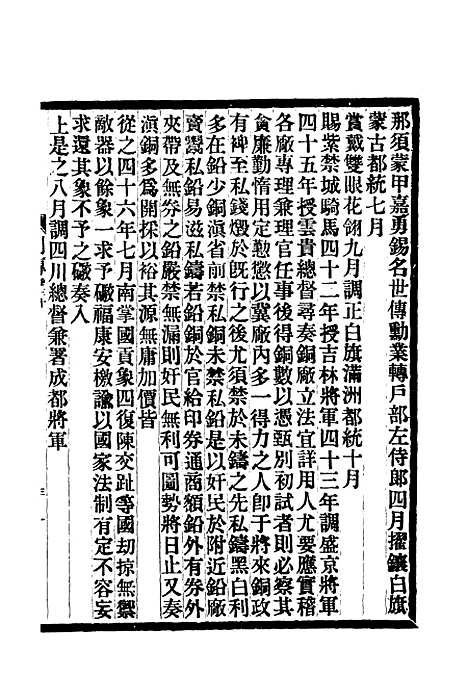 那須蒙甲嘉勇錫名世傳勳業轉戶部左侍郎四月擢鑲白旗
蒙古都統七月
賞戴雙眼花翎九月調正白旗滿洲都統十月
賜紫禁城騎馬四十二年授吉林將軍四十三年調盛京將軍
四十五年授雲貴總督尋奏銅廠立法宜詳用人尤要應實稽
各廠專理兼理官任事後得銅數以憑甄別初試者則必察其
貪廉勤惰用定懲勸以冀廠內多一得力之人卽于將來銅政
有裨至私錢燬於旣行之後尤須禁於未鑄之先私鑄黑白利
多在鉛少銅滇省前禁私銅未禁私鉛是以奸民於附近鉛廠
賣鬻私鉛易滋私鑄若鉛銅於官給印券通商額鉛外有券外
夾帶及無券之鉛嚴禁無漏則奸民無利可圖勢將日止又奏
滇銅多爲開採以裕其源無庸加價皆
從之四十六年七月南掌國貢象四復陳交趾等國刧掠無禦
敵器以餘象一求予礮福康安檄諭以國家法制有定不容妄
求還其象不予之礮奏入
上是之八月調四川總督兼署成都將軍